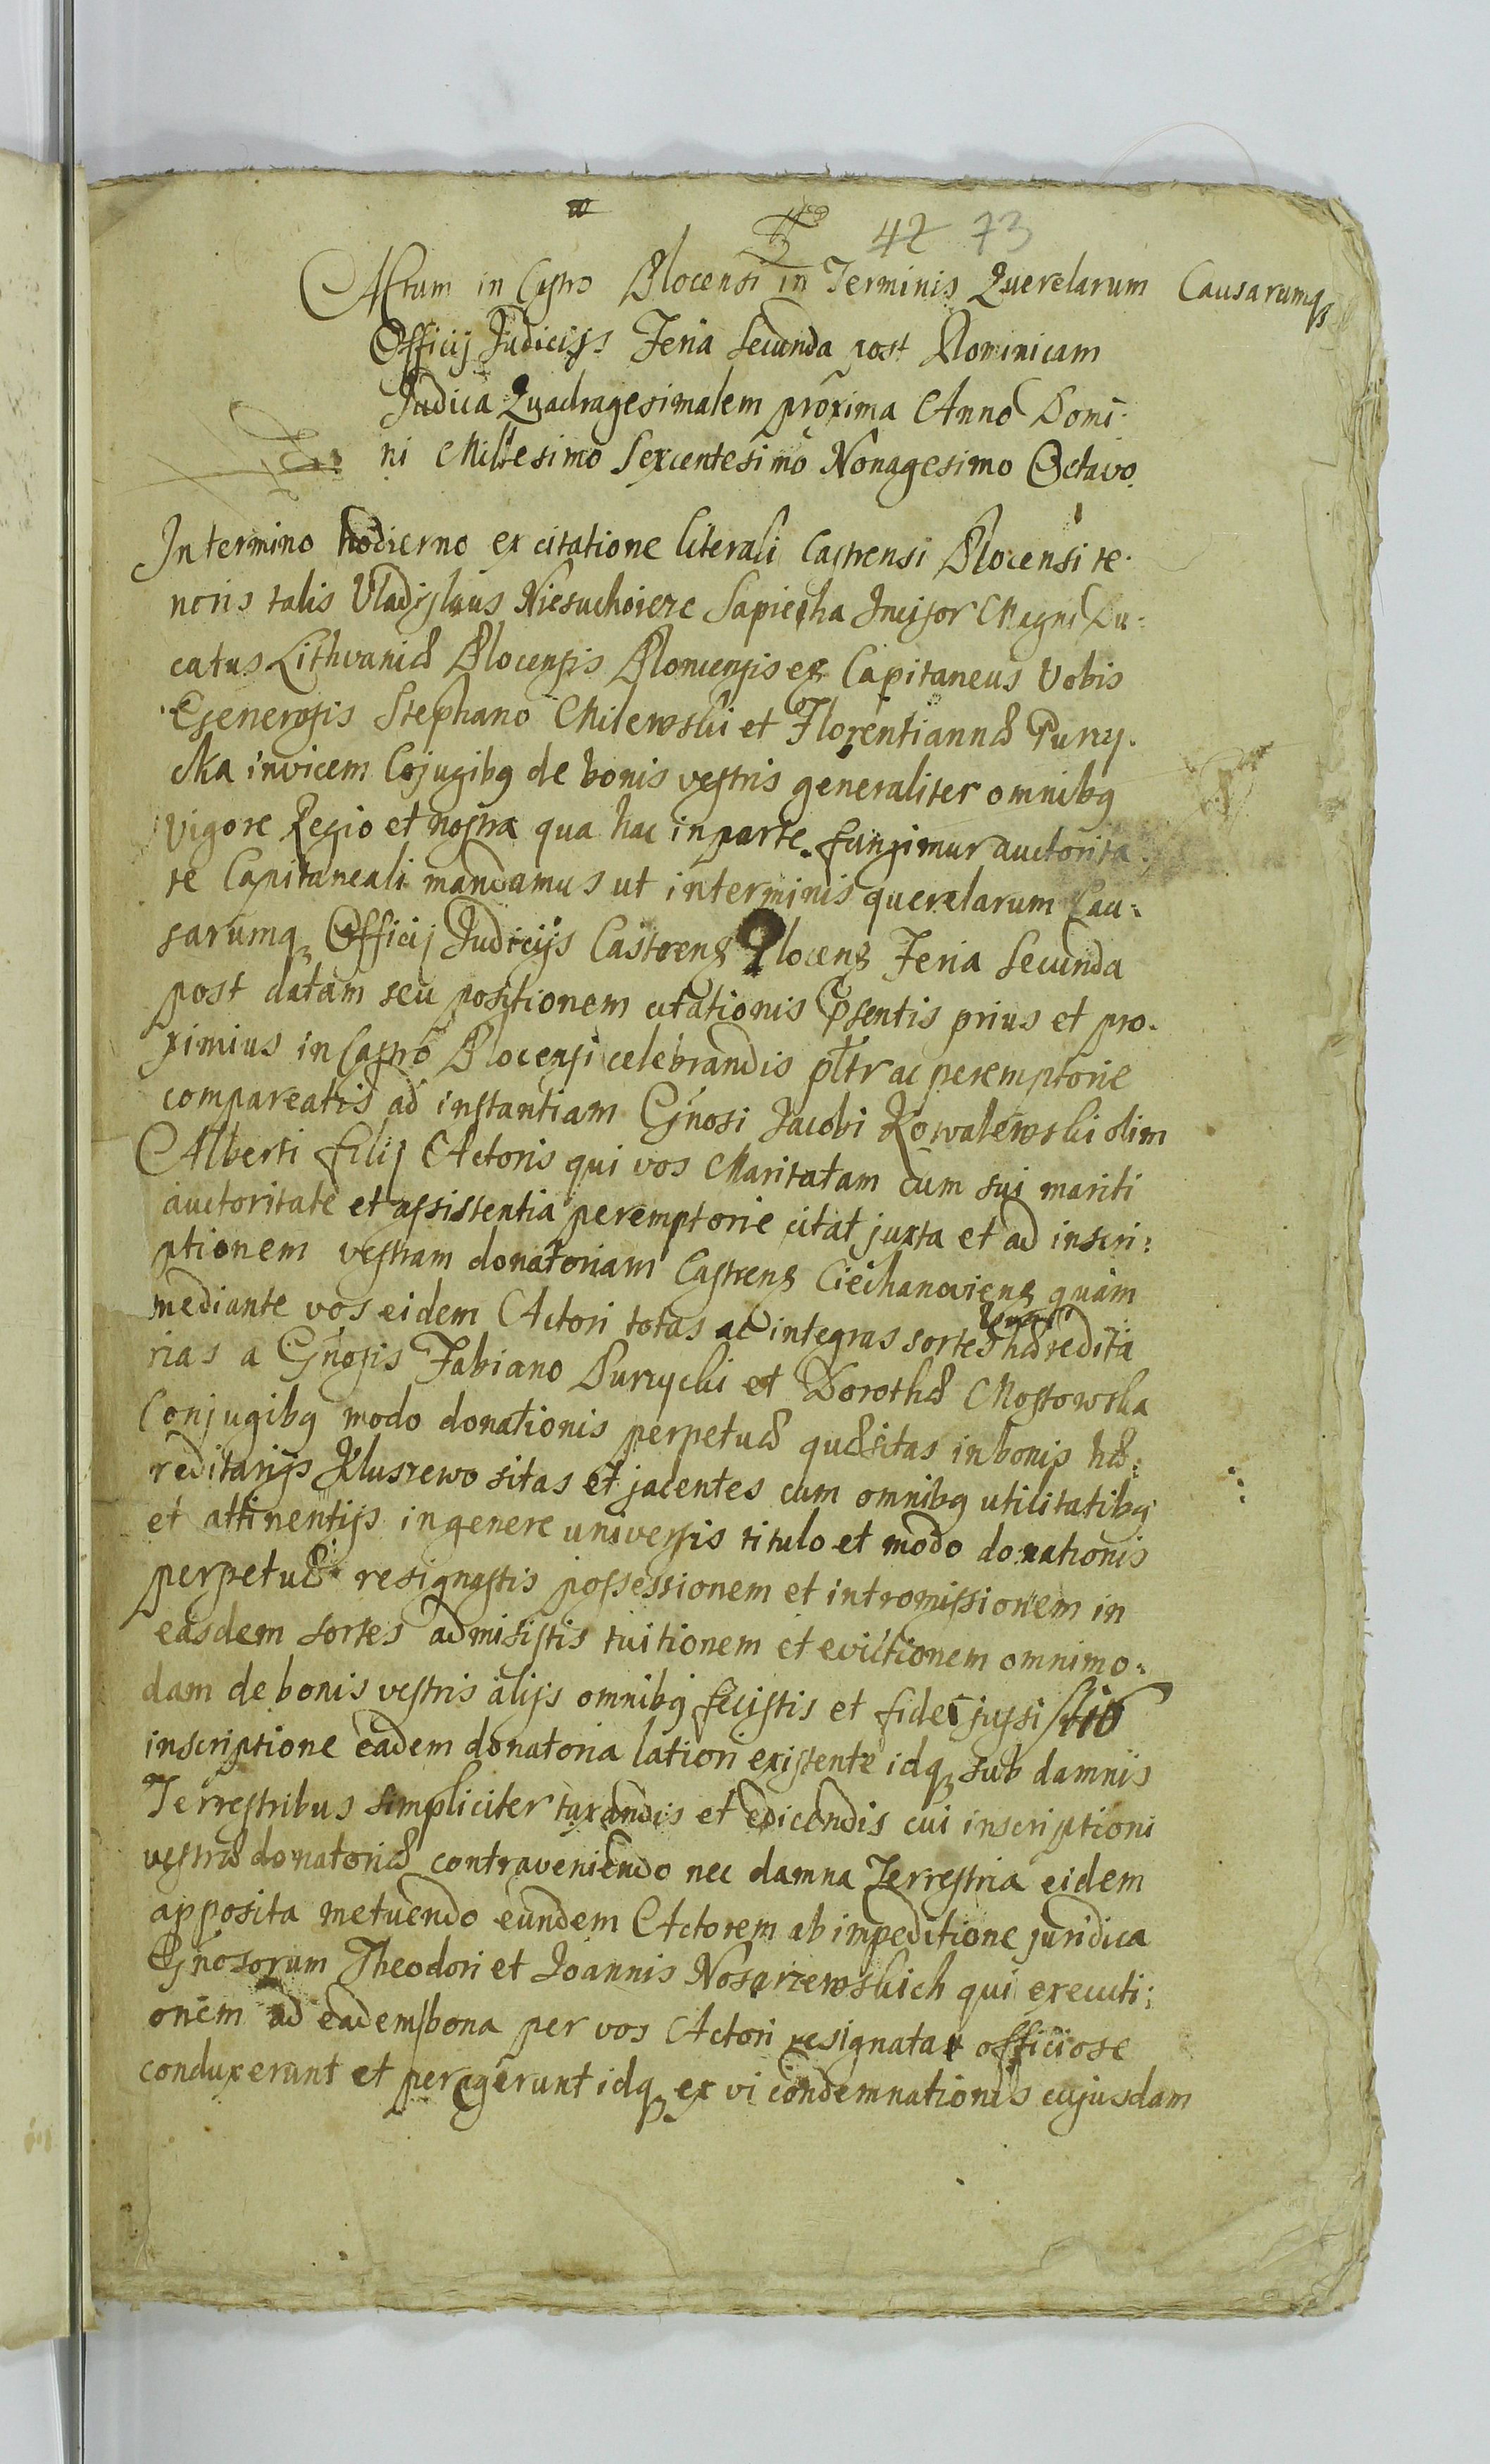 42 73
Actum in Castro Plocensi in Terminis Querelarum Causarumq
Officij Judicijs Feria Secunda post Dominicam
Judica Quadragesimalem proxima Anno Domi-
ni Millesimo Sexcentesimo Nonagesimo Octavo
In termino hodierno ex citatione literali Castrensi Plocensi te-
noris talis Vladislaus Niesuchoiere Sapieha Incisor Magni Du-
catus Lithvaniæ Plocensis Plonensis eg Capitaneus Vobis
Generosis Stephano Milewski et Florentiannæ Purzy-
cka invicem Cojugibq de bonis vestris generaliter omnibq
vigore Regio et nostra qua hac in parte fungimur auctorita
te Capitaneali mandamus ut in terminis querelarum Cau-
sarumq Officij Judicijs Castrens Plocens Feria Secunda
post datam seu positionem citationis pñsentis prius et pro-
ximius in Castro Plocensi celebrandis pltr ac peremptorie
compareatis ad instantiam Gñosi Jacobi Kowalewski olim
Alberti filij Actoris qui vos Maritatam cum sui mariti
auctoritate et assistentia peremptorie citat juxta et ad inscri-
ptionem vestram donatoriam Castrens Ciechanoviens quam
mediante vos eidem Actori totas ac integras sortes hæredita
rias a Gñosis Fabiano Purzycki et Dorothæ Mostowska
Conjugibq modo donationis perpetuæ quæsitas in bonis hæ-
reditarijs Kluszewo sitas et jacentes cum omnibq utilitatibq
et attinentijs in genere universis titulo et modo donationis
perpetuæ resignastis possessionem et intromissionem in
easdem sortes admisistis tuitionem et evictionem omnimo-
dam de bonis vestris alijs omnibq fecistis et fidejussistis
inscriptione eadem donatoria latiori existente idq sub damnis
Terrestribus simpliciter taxandis et edicendis cui inscriptioni
vestræ donatoriæ contraveniendo nec damna Terrestria eidem
apposita metuendo eundem Actorem ab impeditione juridica
Gñosorum Theodori et Joannis Nosarzewskich qui executi-
onem ad eadem bona per vos Actori resignata officiose
conduxerunt et peragerunt idq ex vi condemnationis cujusdam